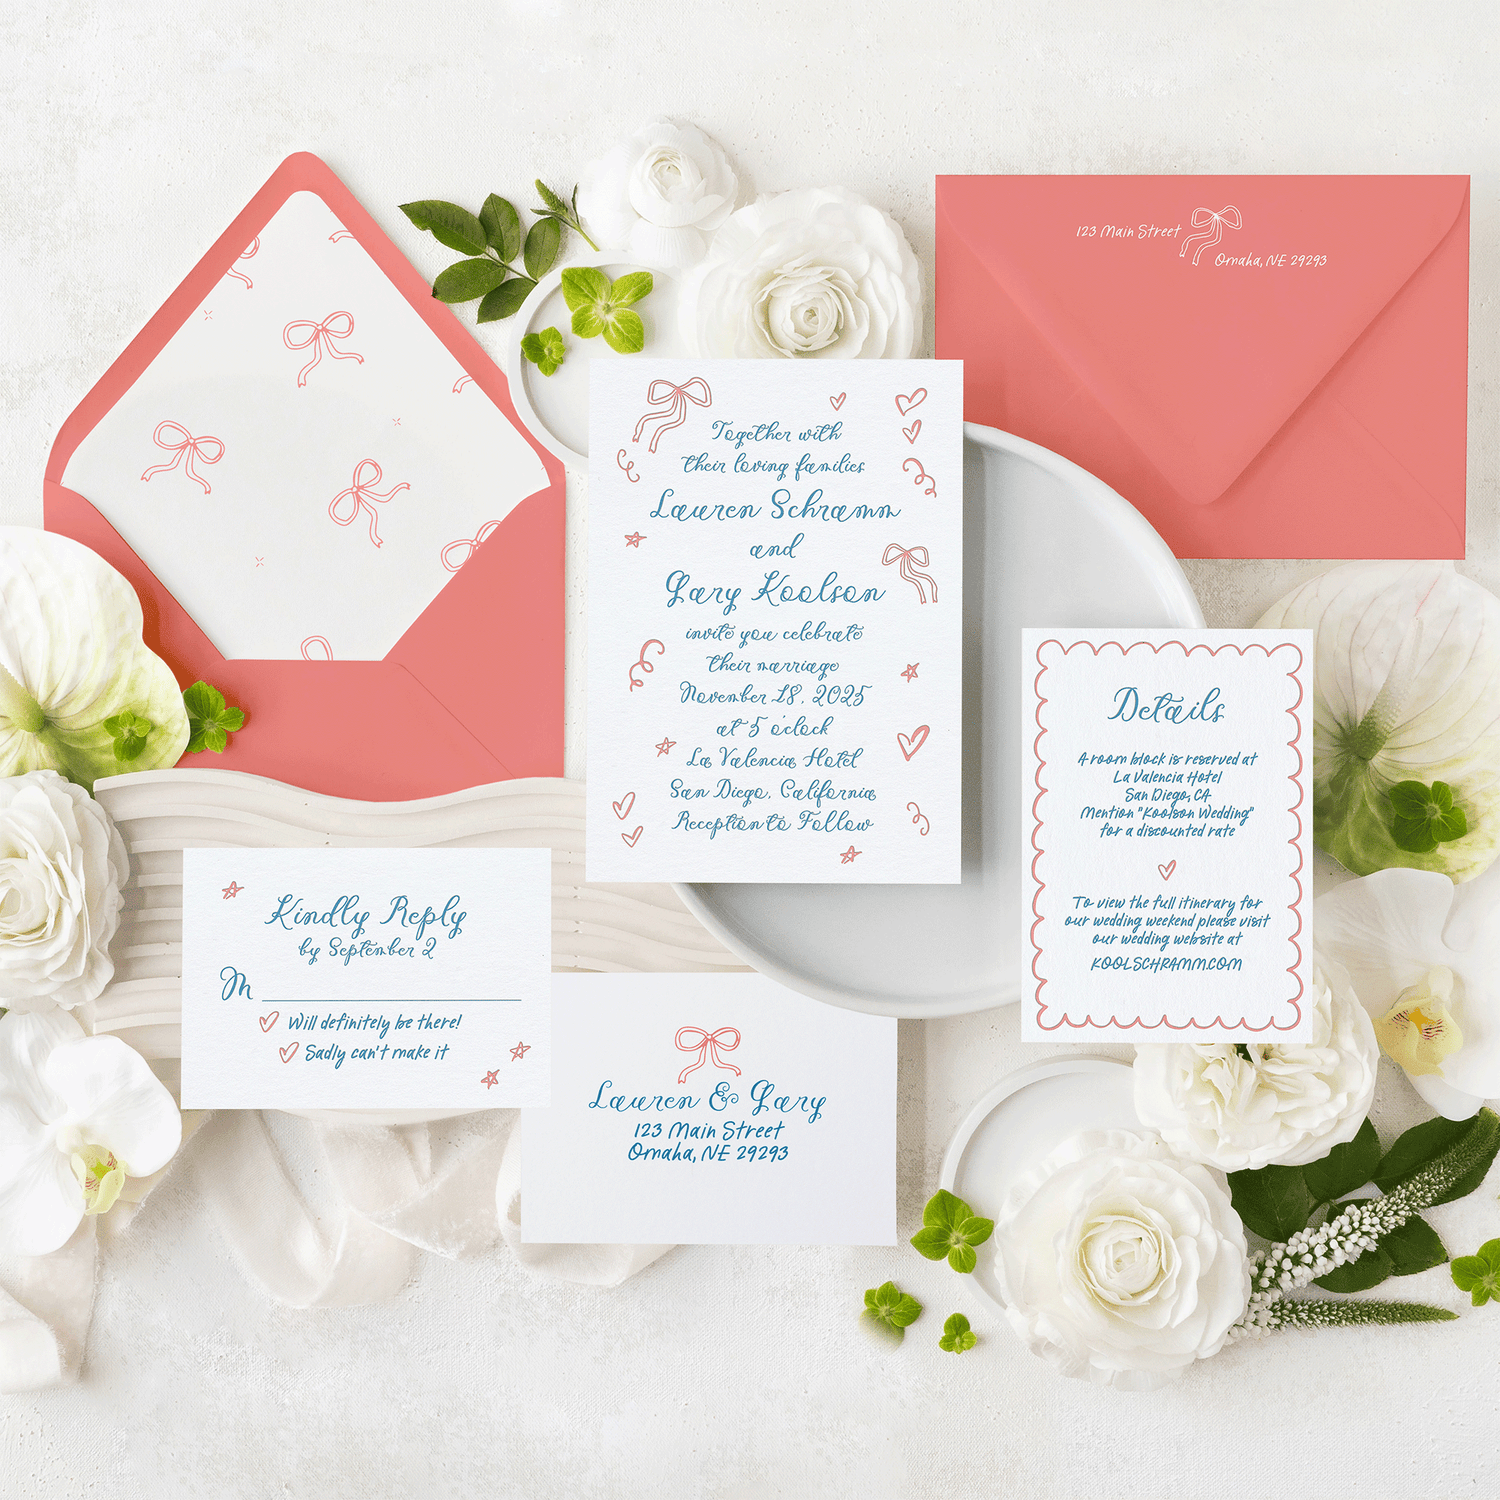 123 Main Street
Omaha, NE 29293
Together with
their loving families
Lauren Schramm
and
Gary Koolson
invite you celebrate
their marriage
November 18, 2025
at 5 o'clock
La Valencia Hotel
San Diego, California
Reception to Follow
Details
A room block is reserved at
La Valencia Hotel
San Diego, CA
Mention "Koolson Wedding"
for a discounted rate
To view the full itinerary for
our wedding weekend please visit
our wedding website at
KOOLSCHRAMM.COM
Kindly Reply
by September 2
M
Will definitely be there!
Sadly can't make it
Lauren & Gary
123 Main Street
Omaha, NE 29293